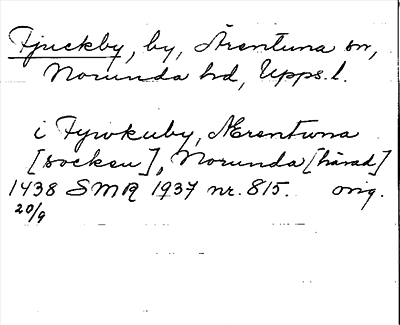 Fjuckby, by, Ärentuna sn,
Norunda hd, Upps. l.
i Fywkuby, Ærentwna
[socken], Norunda [härad]
1438 SMR 1937 nr. 815. orig.
20/9